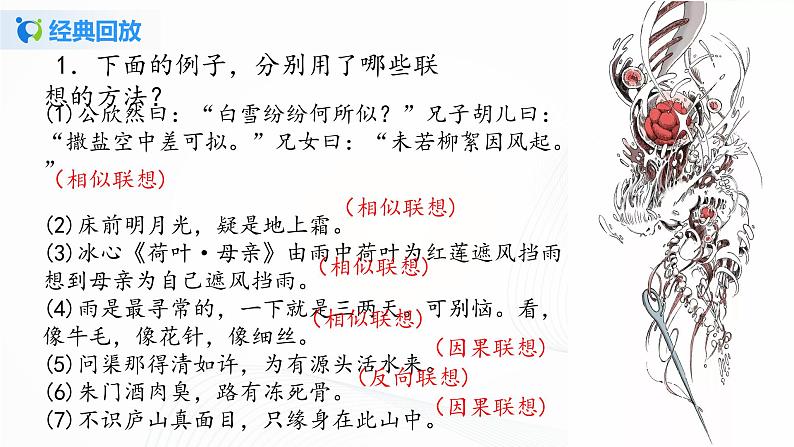 经典回放
1．下面的例子，分别用了哪些联
想的方法？
(1)公欣然曰：“白雪纷纷何所似？”兄子胡儿曰：
“撒盐空中差可拟。”兄女曰：“未若柳絮因风起。
”
（相似联想）
（相似联想）
(2)床前明月光，疑是地上霜。
(3)冰心《荷叶·母亲》由雨中荷叶为红莲遮风挡雨
想到母亲为自己遮风挡雨。
（相似联想）
(4)雨是最寻常的，一下就是三两天。可别恼。看，
（相似联想）
像牛毛，像花针，像细丝。
（因果联想）
(5)问渠那得清如许，为有源头活水来。
（反向联想）
(6)朱门酒肉臭，路有冻死骨。
（因果联想）
(7)不识庐山真面目，只缘身在此山中。